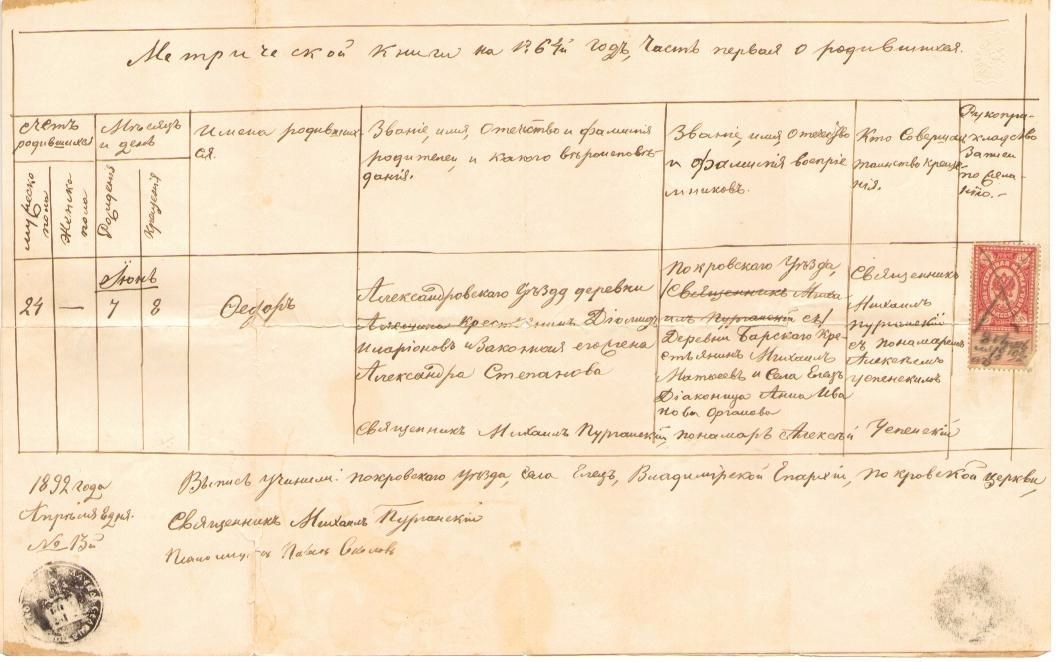 Метрической книги на 1864й годъ, Часть первая о родившихся.
Счетъ родившихся
мужеско пола
Женска пола
Мѣсяцъ и день
Рожденія
Крещенія
Имена родившихся.
Званіе, имя, отечество и фамилія
родителей, и какого вѣроисповѣ-
данія.
Званіе, имя, отечество
и фамилія воспріе-
мниковъ.
Кто Совершалъ
таинство Креще-
нія.
Рукопри-
кладство
записи
по жела-
нію.
Іюнь
24
—
7
8
Ѳедоръ
Александровскаго Уѣзда деревни
Крестьянинъ Діомид
Иларіоновъ и Законная его жена
Александра Степанова
Покровскаго Уѣзда
Священникъ Миха
илъ Пурганскій
Деревни Барскаго Кре-
стьянинъ Михаилъ
Матвеевъ и Села Елецъ
Діаконица Анна Ива
нова
Священникъ
Михаилъ
Пурганскій
съ понамаремъ
Алексѣемъ
Успенскимъ
Священникъ Михаилъ Пурганскій, понамарь Алексѣй Успенскій
1892 года
Апрѣля 8 дня.
№ 13й
Выпись учинили: Покровскаго Уѣзда, Села Елецъ, Владимірской Епархіи, Покровской церкви,
Священникъ Михаилъ Пурганскій